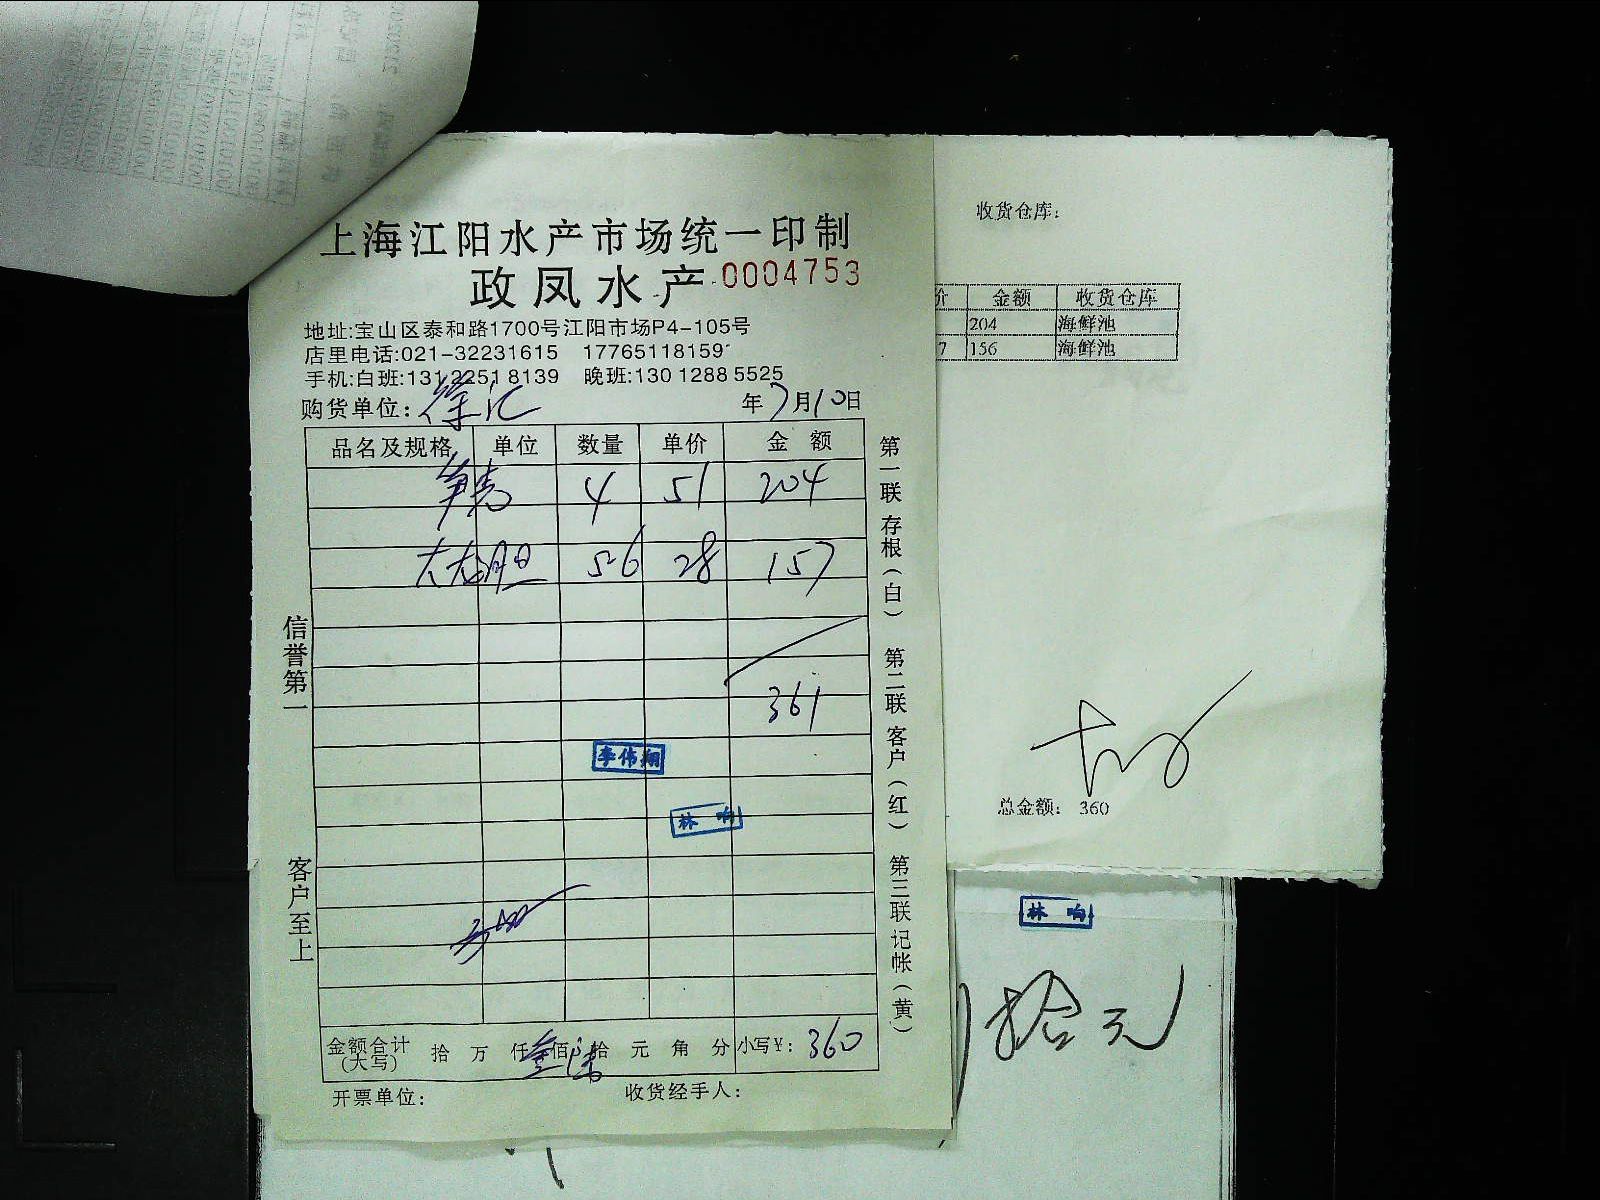 上海江阳水产市场统一印制
政凤水产 0004753
地址:宝山区泰和路1700号江阳市场P4-105号
店里电话:021-32231615 17765118159
手机:白班:131 2251 8139 晚班:130 1288 5525
购货单位: 徐汇 年7月10日
品名及规格 单位 数量 单价 金额
笋壳 4 51 204
太太胆 56 28 157
361
李伟翔
林响
金额合计(大写) 拾万仟叁佰陆拾元角分 小写¥: 360
开票单位: 收货经手人:
信誉第一
客户至上
第一联存根(白) 第二联客户(红) 第三联记帐(黄)
收货仓库:
价 金额 收货仓库
204 海鲜池
7 156 海鲜池
总金额: 360
林响
拾元